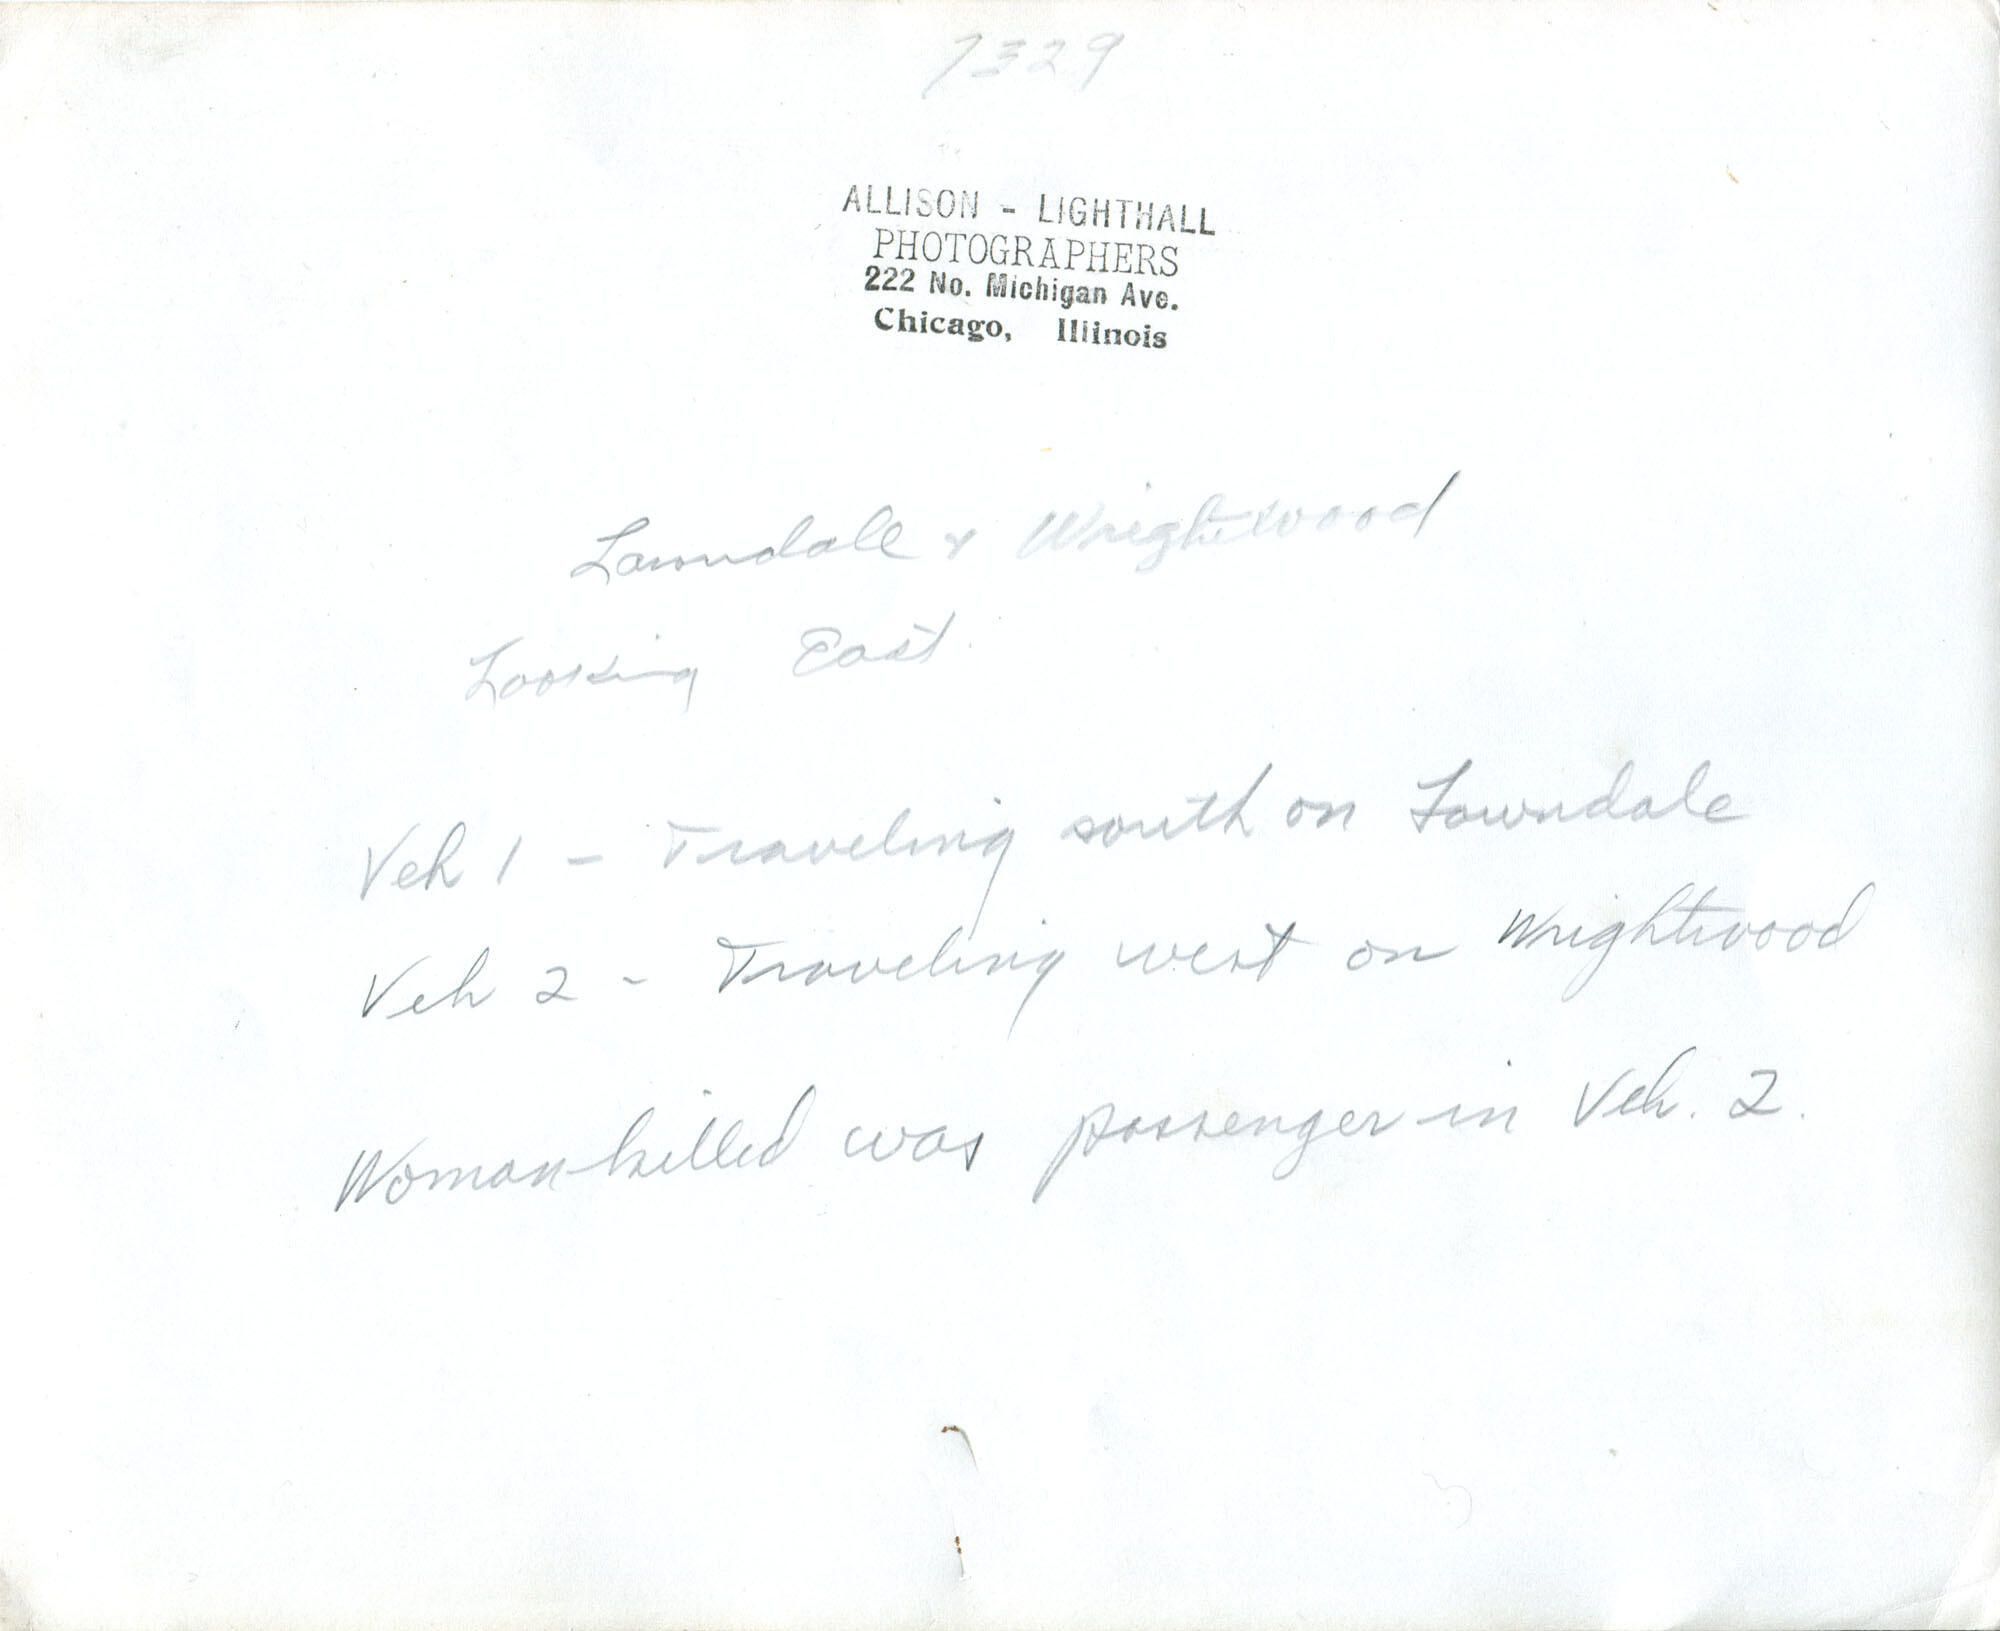 7329
ALLISON - LIGHTHALL
PHOTOGRAPHERS
222 No. Michigan Ave.
Chicago, Illinois
Lawndale & Wrightwood
Looking East.
Veh 1 - Traveling south on Lawndale
Veh 2 - Traveling west on Wrightwood
Woman killed was passenger in Veh. 2.